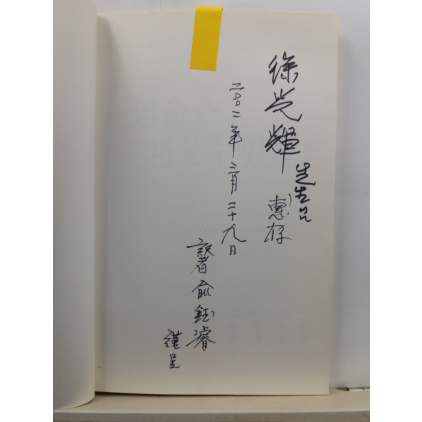 徐光輝先生
惠存
二〇〇二年三月二十九日
訳者俞鈺濬
謹呈